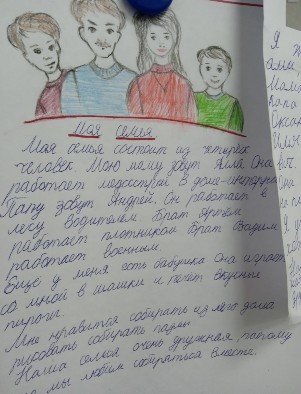 Моя семья
Моя семья состоит из четырёх
человек Мою маму зовут Алла Она
работает медсестрой В доме-интерна
Папу зовут Андрей. Он работает в
лесу водителем Брат Артём
работает плотником Брат Вадим
работает военным.
Еще у меня есть бабушка она играет
со мной в шашки и печет вкусные
пироги.
Мне нравится собирать из лего дома
рисовать собирать пазлы
Наша семья очень дружная, потому
мы любим собираться вместе.
Я
Мама
Папа
Оксан